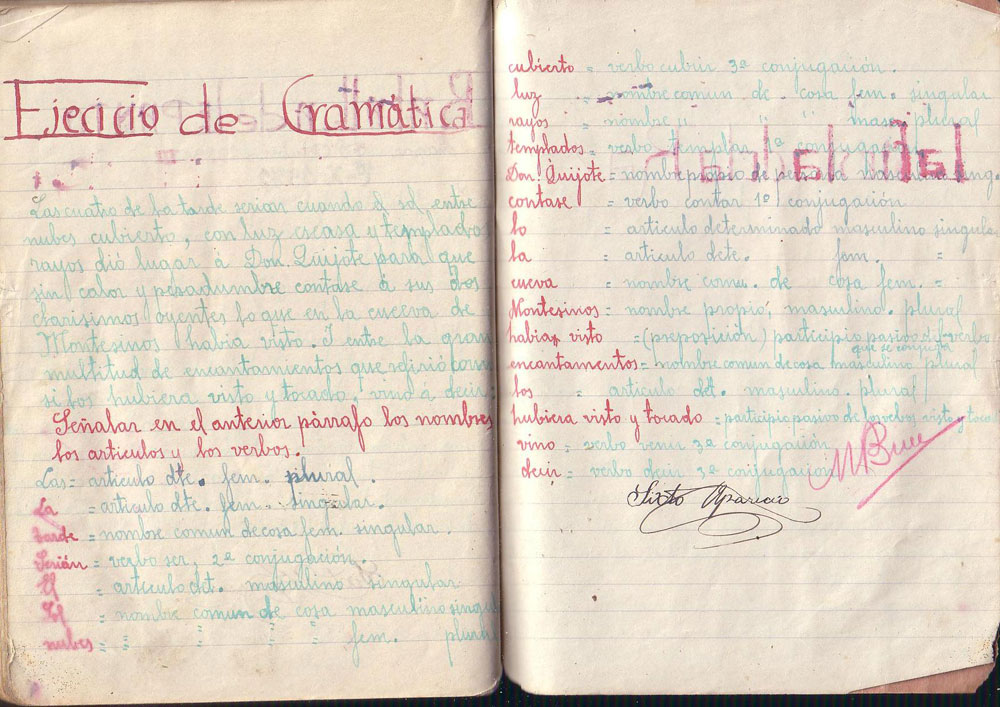 Ejecicio de Gramática
Las cuatro de la tarde serian cuando el sol entre
nubes cubierto, con luz escasa y templados
rayos dió lugar á Don Quijote para que
sin calor y pesadumbre contase á sus dos
clarisimos oyentes lo que en la cueeva de
Montesinos habia visto. I entre la gran
multitud de encantamientos que refirió como
si los hubiera visto y tocado, vino á decir:
Señalar en el anterior párrafo los nombres
los articulos y los verbos.
Las = articulo dte. fem. plural.
La = articulo dte. fem. singular.
tarde = nombre comun de cosa fem. singular.
Serián = verbo ser, 2ª conjugación.
El = articulo det. masculino singular
Sol = nombre comun de cosa masculino singul
nubes = " " " " fem. plural
cubierto = verbo cubrir 3ª conjugación.
luz = nombre comun de cosa fem. singular
rayos = nombre " " " mas. plural
templados = verbo templar 1ª conjugación
Don Quijote = nombre propio de persona masculino sing.
contase = verbo contar 1ª conjugación
lo = articulo determinado masculino singula
la = articulo dete. fem. =
cueva = nombre comu. de cosa fem. =
Montesinos = nombre propio, masculino. plural
habia visto = (preposición) participio pasivo del verbo
que se conjuga
encantamentos = nombre comun de cosa masculino plural
los = articulo dt. masculino. plural
hubiera visto y tocado = participio pasivo de los verbos visto y toca
vino = verbo venir 3ª conjugación
decir = verbo decir 3ª conjugación
Sixto Aparicio